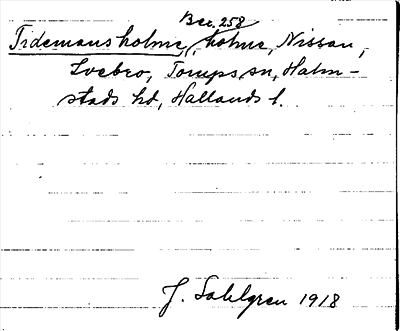 Ber. 258
Tidemansholme, holme, Nissan,
Svebro, Torups sn, Halm-
stads hd, Hallands l.
J. Sahlgren 1918